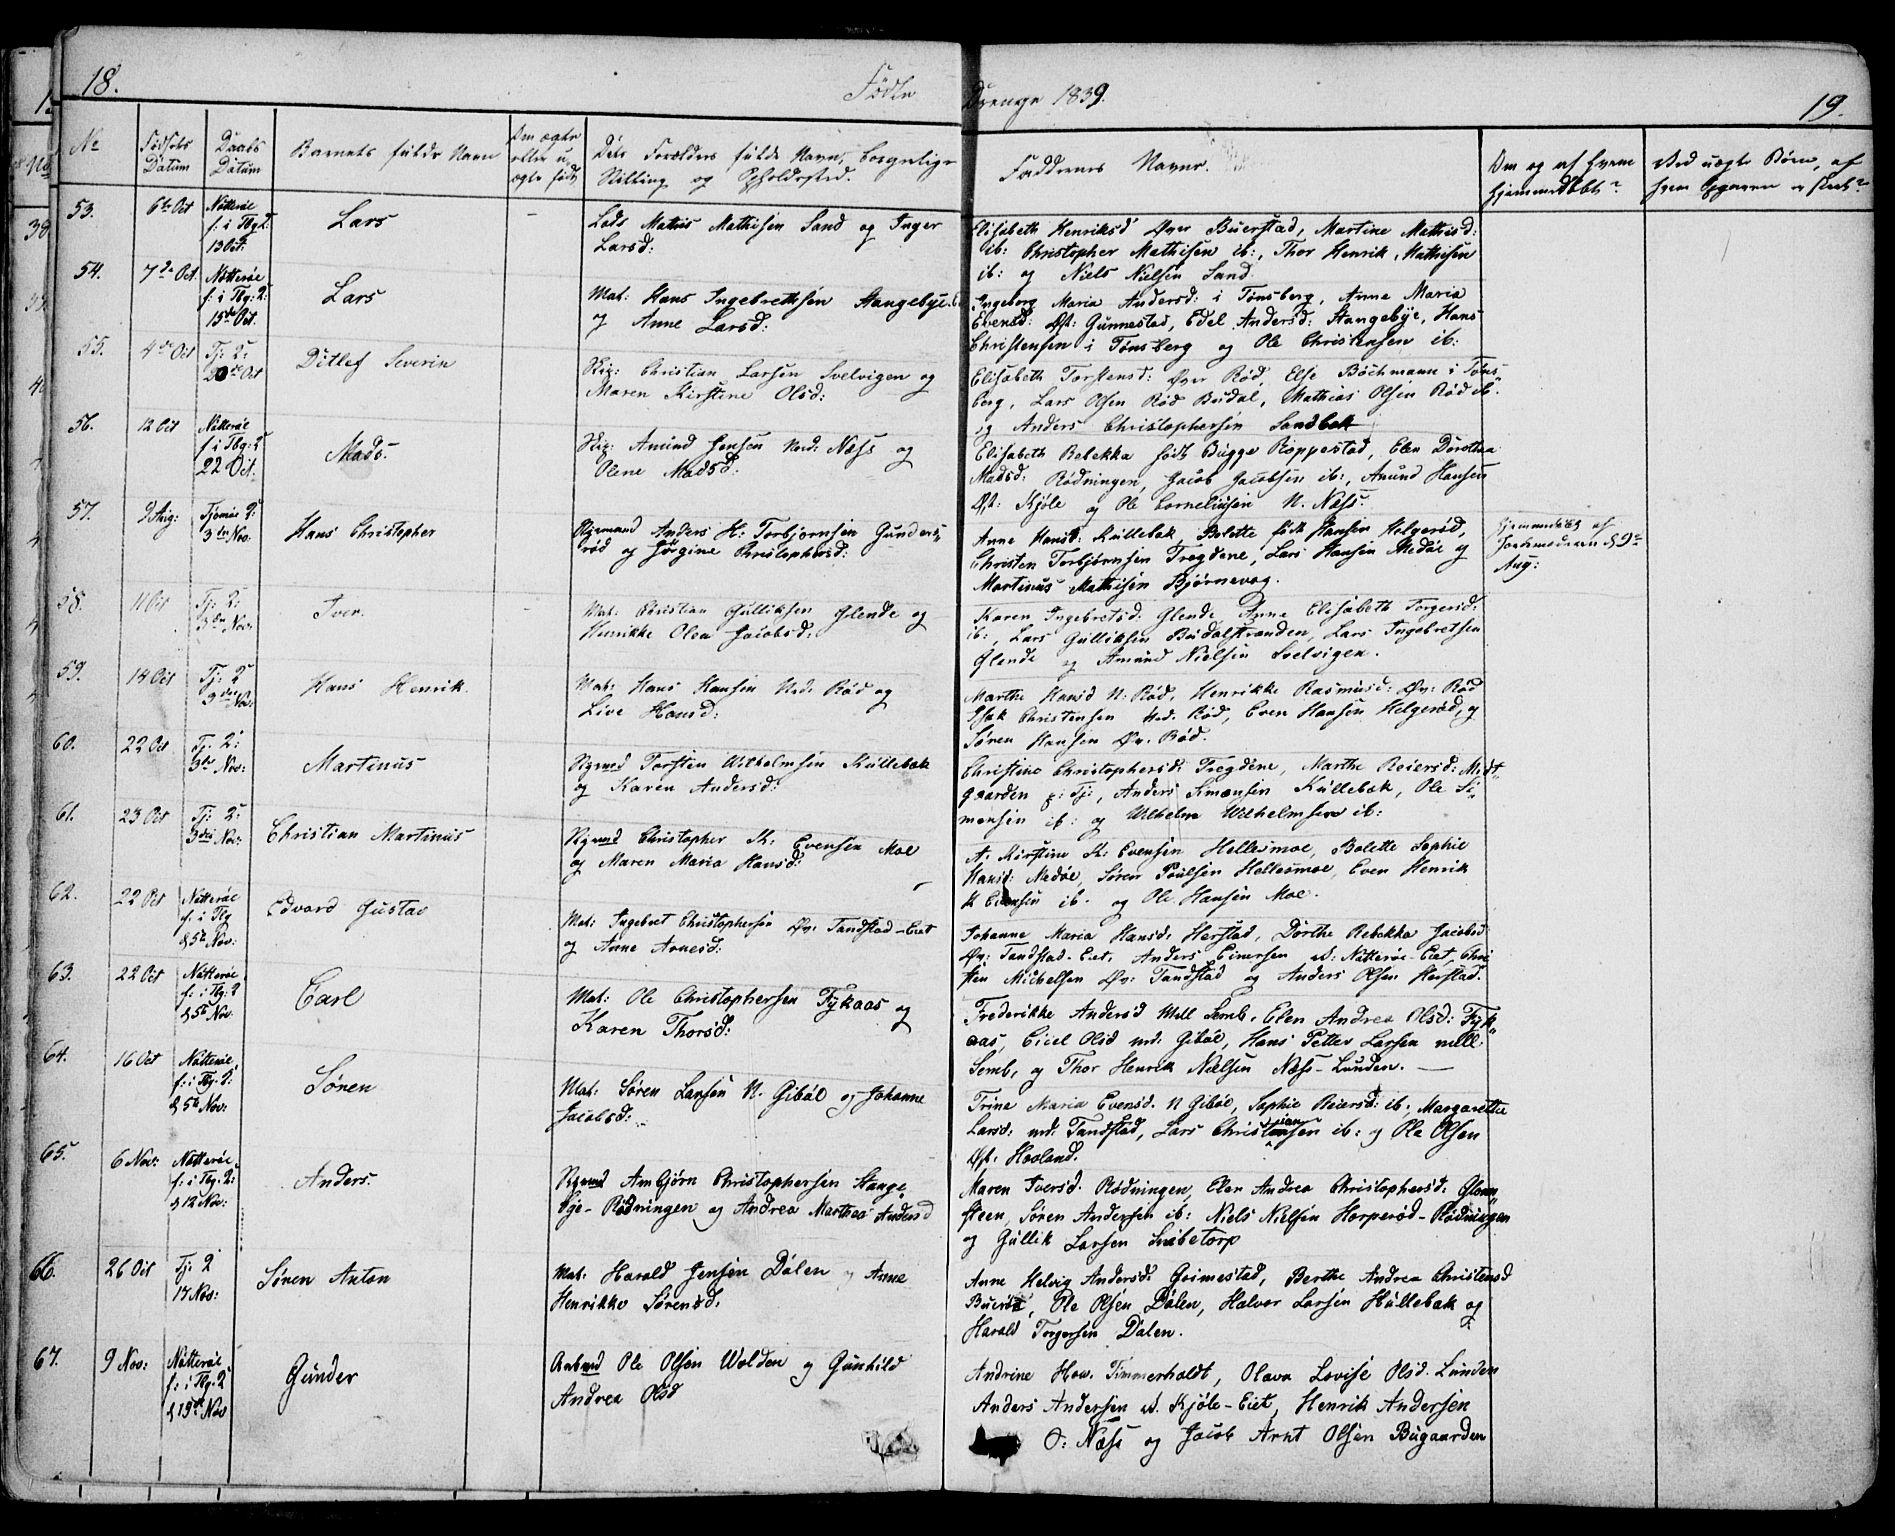 18.
Födte
Drenge 1839.
19.
No
Födsels Datum
Daabs Datum
Barnets fulde Navn
Om ægte eller uægte födt
Dets Forældres fulde Navn, borgerlige
Stilling og Opholdssted.
Faddernes Navne.
Om og af hvem
hjemmedöbt?
Ved uægte Börn, af
hvem Opgaven er skeet?
53.
6te Oct
Nötteröe
f: i Tbg 2:
13 Oct:
Lars
Mathis Mathisen Sand og Inger
Larsd:
Elisabeth Henriksd Över Buerstad, Martine Mathisd:
ib: Christopher Mathisen ib:, Thor Henrik Mathisen
ib: og Niels Nielsen Sand.
54.
7de Oct.
Nötteröe
f: i Tbg: 2:
15de Oct.
Lars
Mat: Hans Ingebrethsen Stangebye
og Anne Larsd:
Ingeborg Maria Andersd: i Tönsberg, Anne Maria
Evensd: Öst: Gunnestad, Edel Andersd: Stangebye, Hans
Christensen i Tönsberg og Ole Christensen ib:
55.
4de Oct
Tj: 2:
20de Oct
Ditlef Severin
Skip: Christian Larsen Svelvigen og
Maren Kirstine Olsd:
Elisabeth Torstensd: Över Röd, Else Böchmann i Töns-
berg, Lars Olsen Röd Budal, Mathias Olsen Röd ib.
og Anders Christophersen Sandbek
56.
12 Oct
Nötteröe
f i Tbg: 2
22 Oct.
Mads.
Skip: Amund Jensen Nord: Næss og
Olene Madsd:
Elisabeth Rebekka födt Bugge Roppestad, Elen Dorothea
Madsd: Rödningen, Jacob Jacobsen ib:, Amund Hansen
Öst: Kjöle og Ole Corneliussen N. Næss.
57.
9 Aug:
Tjömöe 2:
3die Nov:
Hans Christopher
Styrmand Anders H: Torbjörnsen Gunders-
röd og Jörgine Christophersd:
Anne Hansd: Kullebek, Bolette födt Hansen Helgeröd,
Christen Torbjörnsen Tregdene, Lars Hansen Medöe og
Martinus Mathisen Björnevog.
hjemmedöbt af
Jordemoderen d 9de
Aug:
58.
11 Oct
Tj: 2:
3die Nov:
Iver.
Mat: Christian Gulliksen Glende og
Henrikke Olea Jacobsd:
Karen Ingebretsd: Glende, Anne Elisabeth Torgersd:
ib:, Lars Gulliksen Budalstranden, Lars Ingebretsen
Glende og Amund Nielsen Svelvigen.
59.
14 Oct
Tj: 2
3die Nov:
Hans Henrik.
Mat: Hans Hansen Ned: Röd og
Live Hansd:
Marthe Hansd N: Röd, Henrikke Rasmusd: Öv: Röd
Isak Christensen Ned. Röd, Even Hansen Helgeröd, og
Sören Hansen Öv. Röd.
60.
22 Oct
Tj. 2:
3die Nov:
Martinus
Styrmd Torsten Wilhelmsen Kullebek
og Karen Andersd:
Christine Christophersd: Tregdene, Marthe Reiersd: Midt-
gaarden p: Tj:, Anders Simensen Kullebek, Ole Si-
mensen ib: og Wilhelm Wilhelmsen ib:
61.
23 Oct
Tj: 2:
3die Nov:
Christian Martinus
Styrmd Christopher K: Evensen Moe
og Maren Maria Hansd:
A. Kirstine K: Evensen Hellesmoe, Bolette Sophie
Hansd: Medöe, Sören Poulsen Hellesmoe, Even Henrik
K Evensen ib. og Ole Hansen Moe.
62.
22 Oct
Nötteröe
f. i Tbg
d 5te Nov:
Edvard Gustav
Mat: Ingebret Christophersen Öv: Tandstad-Eiet
og Anne Arnesd:
Johanne Maria Hansd: Herstad, Dorthe Rebekka Jacobsd
Öv: Tandstad-Eiet, Anders Einersen Nötteröe-Eiet, Chri
sten Michelsen Öv: Tandstad og Anders Olsen Herstad.
63.
22 Oct
Nötteröe
f: i Tbg: 2
d 5te Nov:
Carl
Mat: Ole Christophersen Tykaas og
Karen Thorsd:
Frederikke Andersd Mell Semb, Elen Andrea Olsd: Tyk-
aas, Cicel Olsd nd: Giböe, Hans Petter Larsen mell:
Semb, og Thor Henrik Nielsen Næss-Lunden.
64.
16 Oct
Nötteröe,
f: i Tbg. 2:
d 5te Nov:
Sören
Mat: Sören Larsen N. Giböe og Johanne
Jacobsd:
Trine Maria Evensd. N Giböe, Sophie Reiersd: ib., Margarethe
Larsd: nd: Tandstad, Lars Christiansen ib: og Ole Olsen
Öst: Hooland.
65.
6 Nov:
Nötteröe
f: i Tbg. 2:
d 12 Nov:
Anders.
Styrmd Ambjörn Christophersen Stange
bye-Rödningen og Andrea Marthea Andersd
Maren Iversd. Rödningen, Elen Andrea Christophersd: Glom-
steen, Sören Andersen ib: Niels Nielsen Horperöd-Rödningen
og Gullik Larsen Snibetorp
66.
26 Oct
Tj: 2
17 Nov:
Sören Anton
Mat: Harald Jensen Dalen og Anne
Henrikke Sörensd.
Anne Helvig Andersd: Grimestad, Berthe Andrea Christensd
Ole Olsen Dalen, Halvor Larsen Hullebak og
Harald Torgersen Dalen.
67.
9 Nov:
Nötteröe
f: i Tbg. 2
d 19de Nov
Gunder
Arbmd Ole Olsen Wolden og Gunhild
Andrea Olsd
Andrine How. Timmerholdt, Olava Lovise Olsd. Lunden
Anders Andersen Kjöle-Eiet, Henrik Andersen
O: Næss og Jacob Arnt Olsen Bugaarden